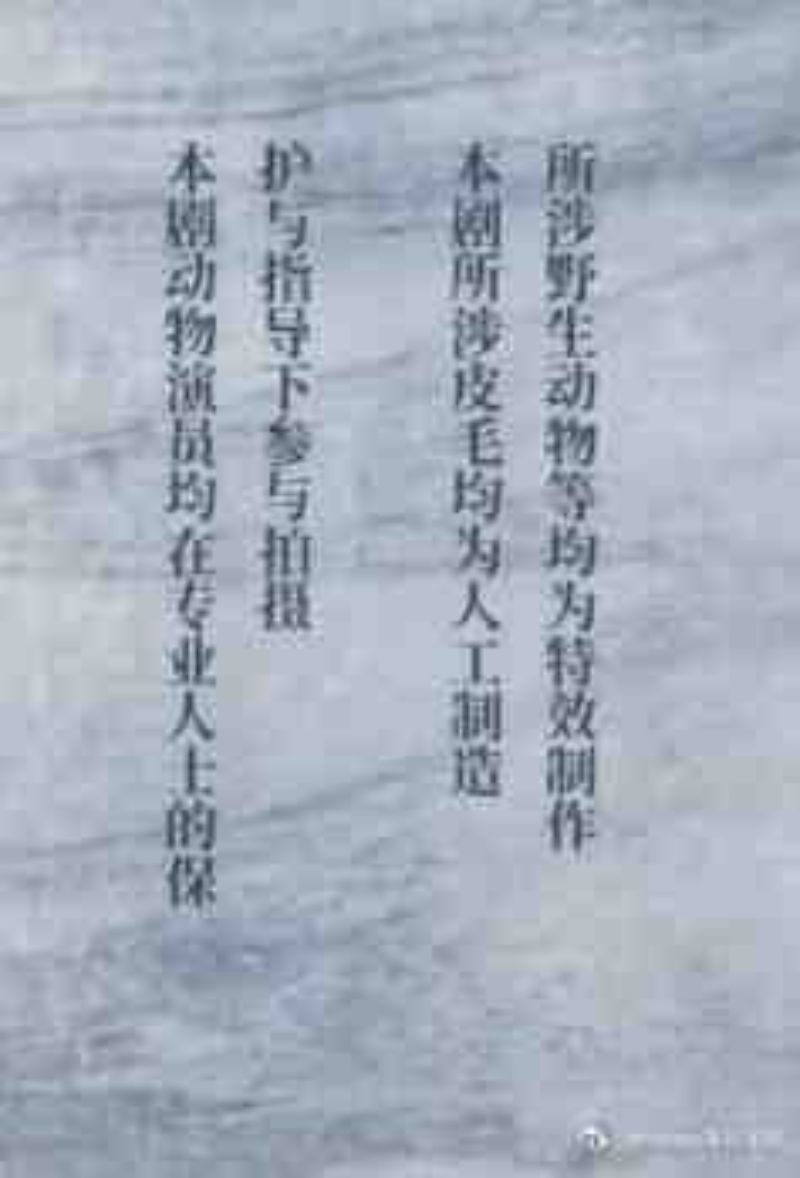 本剧动物演员均在专业人士的保
护与指导下参与拍摄
本剧所涉皮毛均为人工制造
所涉野生动物等均为特效制作